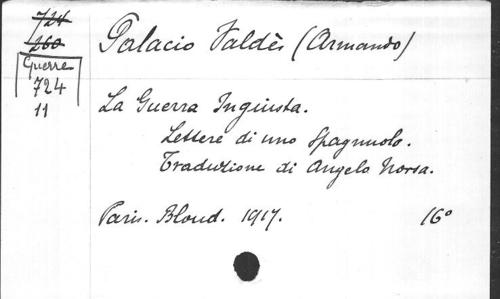 724
260
Guerre
724
11
Palacio Valdès (Armando)
La Guerra Ingiusta.
Lettere di uno Spagnuolo.
Traduzione di Angelo Norsa.
Paris. Bloud. 1917. 16°